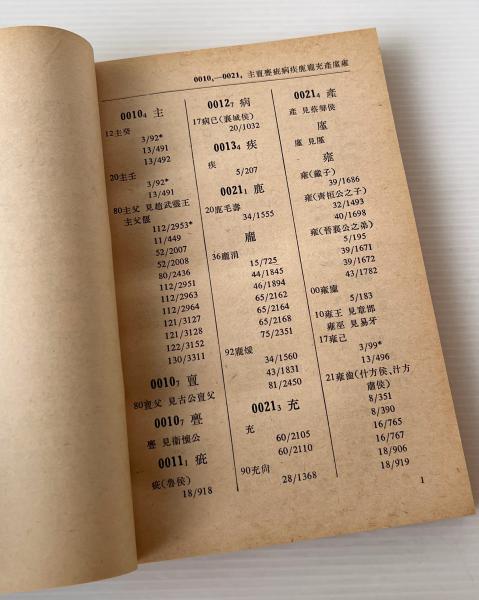 0010₄—0021₄ 主亶亹疵病疾鹿龐充產廬雍
0010₄ 主
12主癸
3/92*
13/491
13/492
20主壬
3/92*
13/491
80主父 見趙武靈王
主父偃
112/2953*
11/449
52/2007
52/2008
80/2436
112/2951
112/2963
112/2964
121/3127
121/3128
122/3152
130/3311
0010₇ 亶
80亶父 見古公亶父
0010₇ 亹
亹 見衛懷公
0011₁ 疵
疵(魯侯)
18/918
0012₇ 病
17病已(襄城侯)
20/1032
0013₄ 疾
疾
5/207
0021₁ 鹿
20鹿毛壽
34/1555
龐
36龐涓
15/725
44/1845
46/1894
65/2162
65/2164
65/2168
75/2351
92龐煖
34/1560
43/1831
81/2450
0021₃ 充
充
60/2105
60/2110
90充尙
28/1368
0021₄ 產
產 見蔡聲侯
廬
雍
雍(戴子)
39/1686
雍(齊桓公之子)
32/1493
40/1698
雍(晉襄公之弟)
5/195
39/1671
39/1672
43/1782
00雍廩
5/183
10雍王 見章邯
雍巫 見易牙
17雍己
3/99*
13/496
21雍齒(什方侯、汁方
肅侯)
8/351
8/390
16/765
16/767
18/906
18/919
1